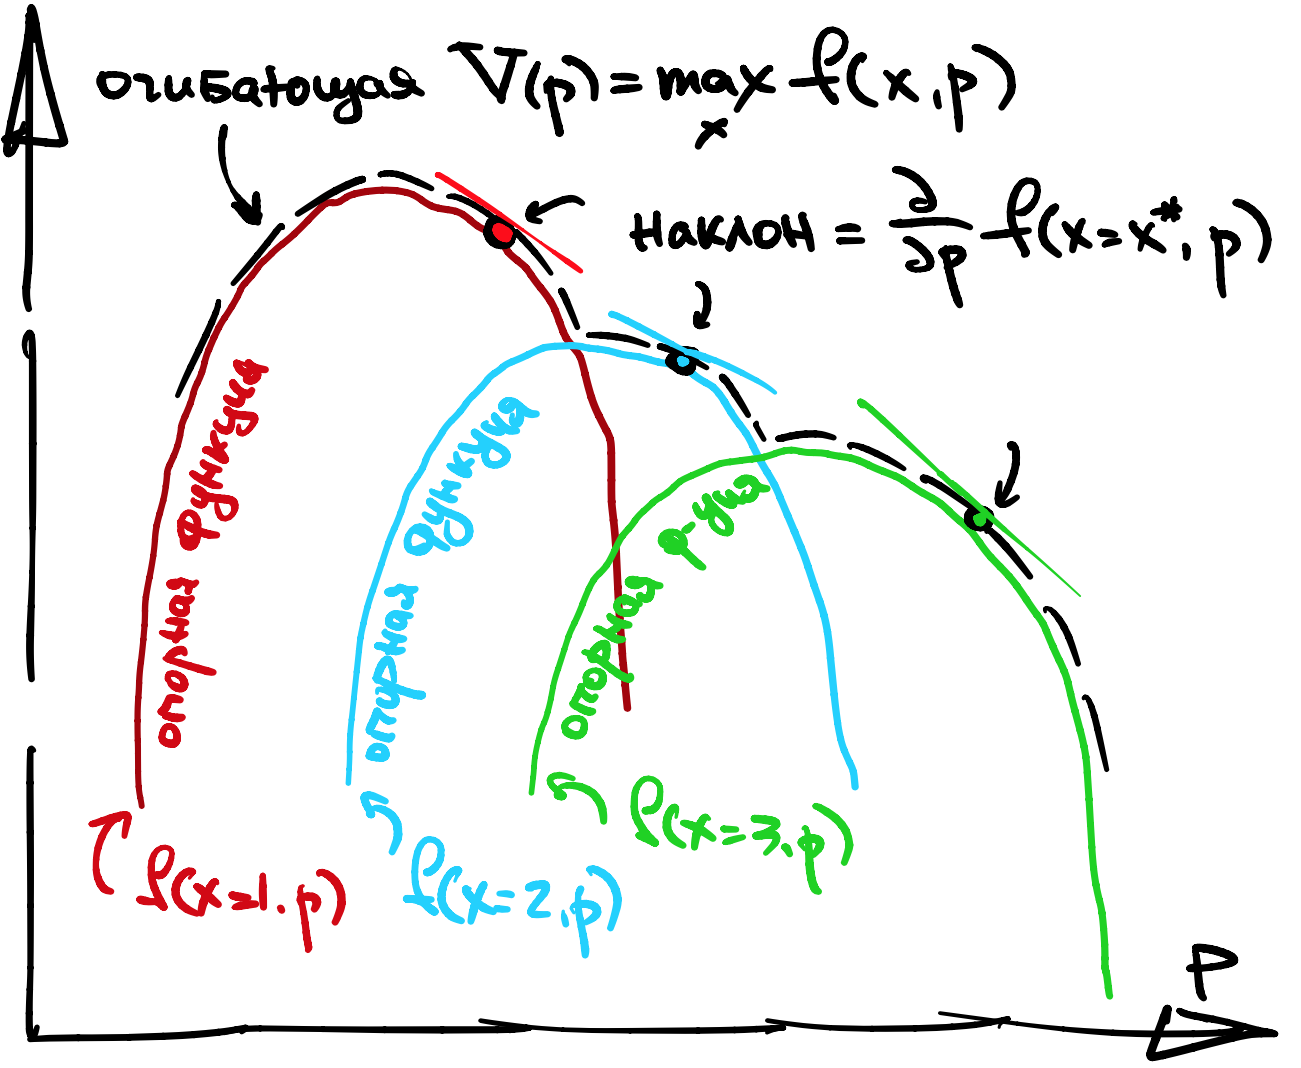 огибающая V(p) = max f(x,p)
x
наклон = ∂/∂p f(x=x*, p)
опорная функция
опорная функция
опорная ф-ция
f(x=1,p)
f(x=2,p)
f(x=3,p)
P